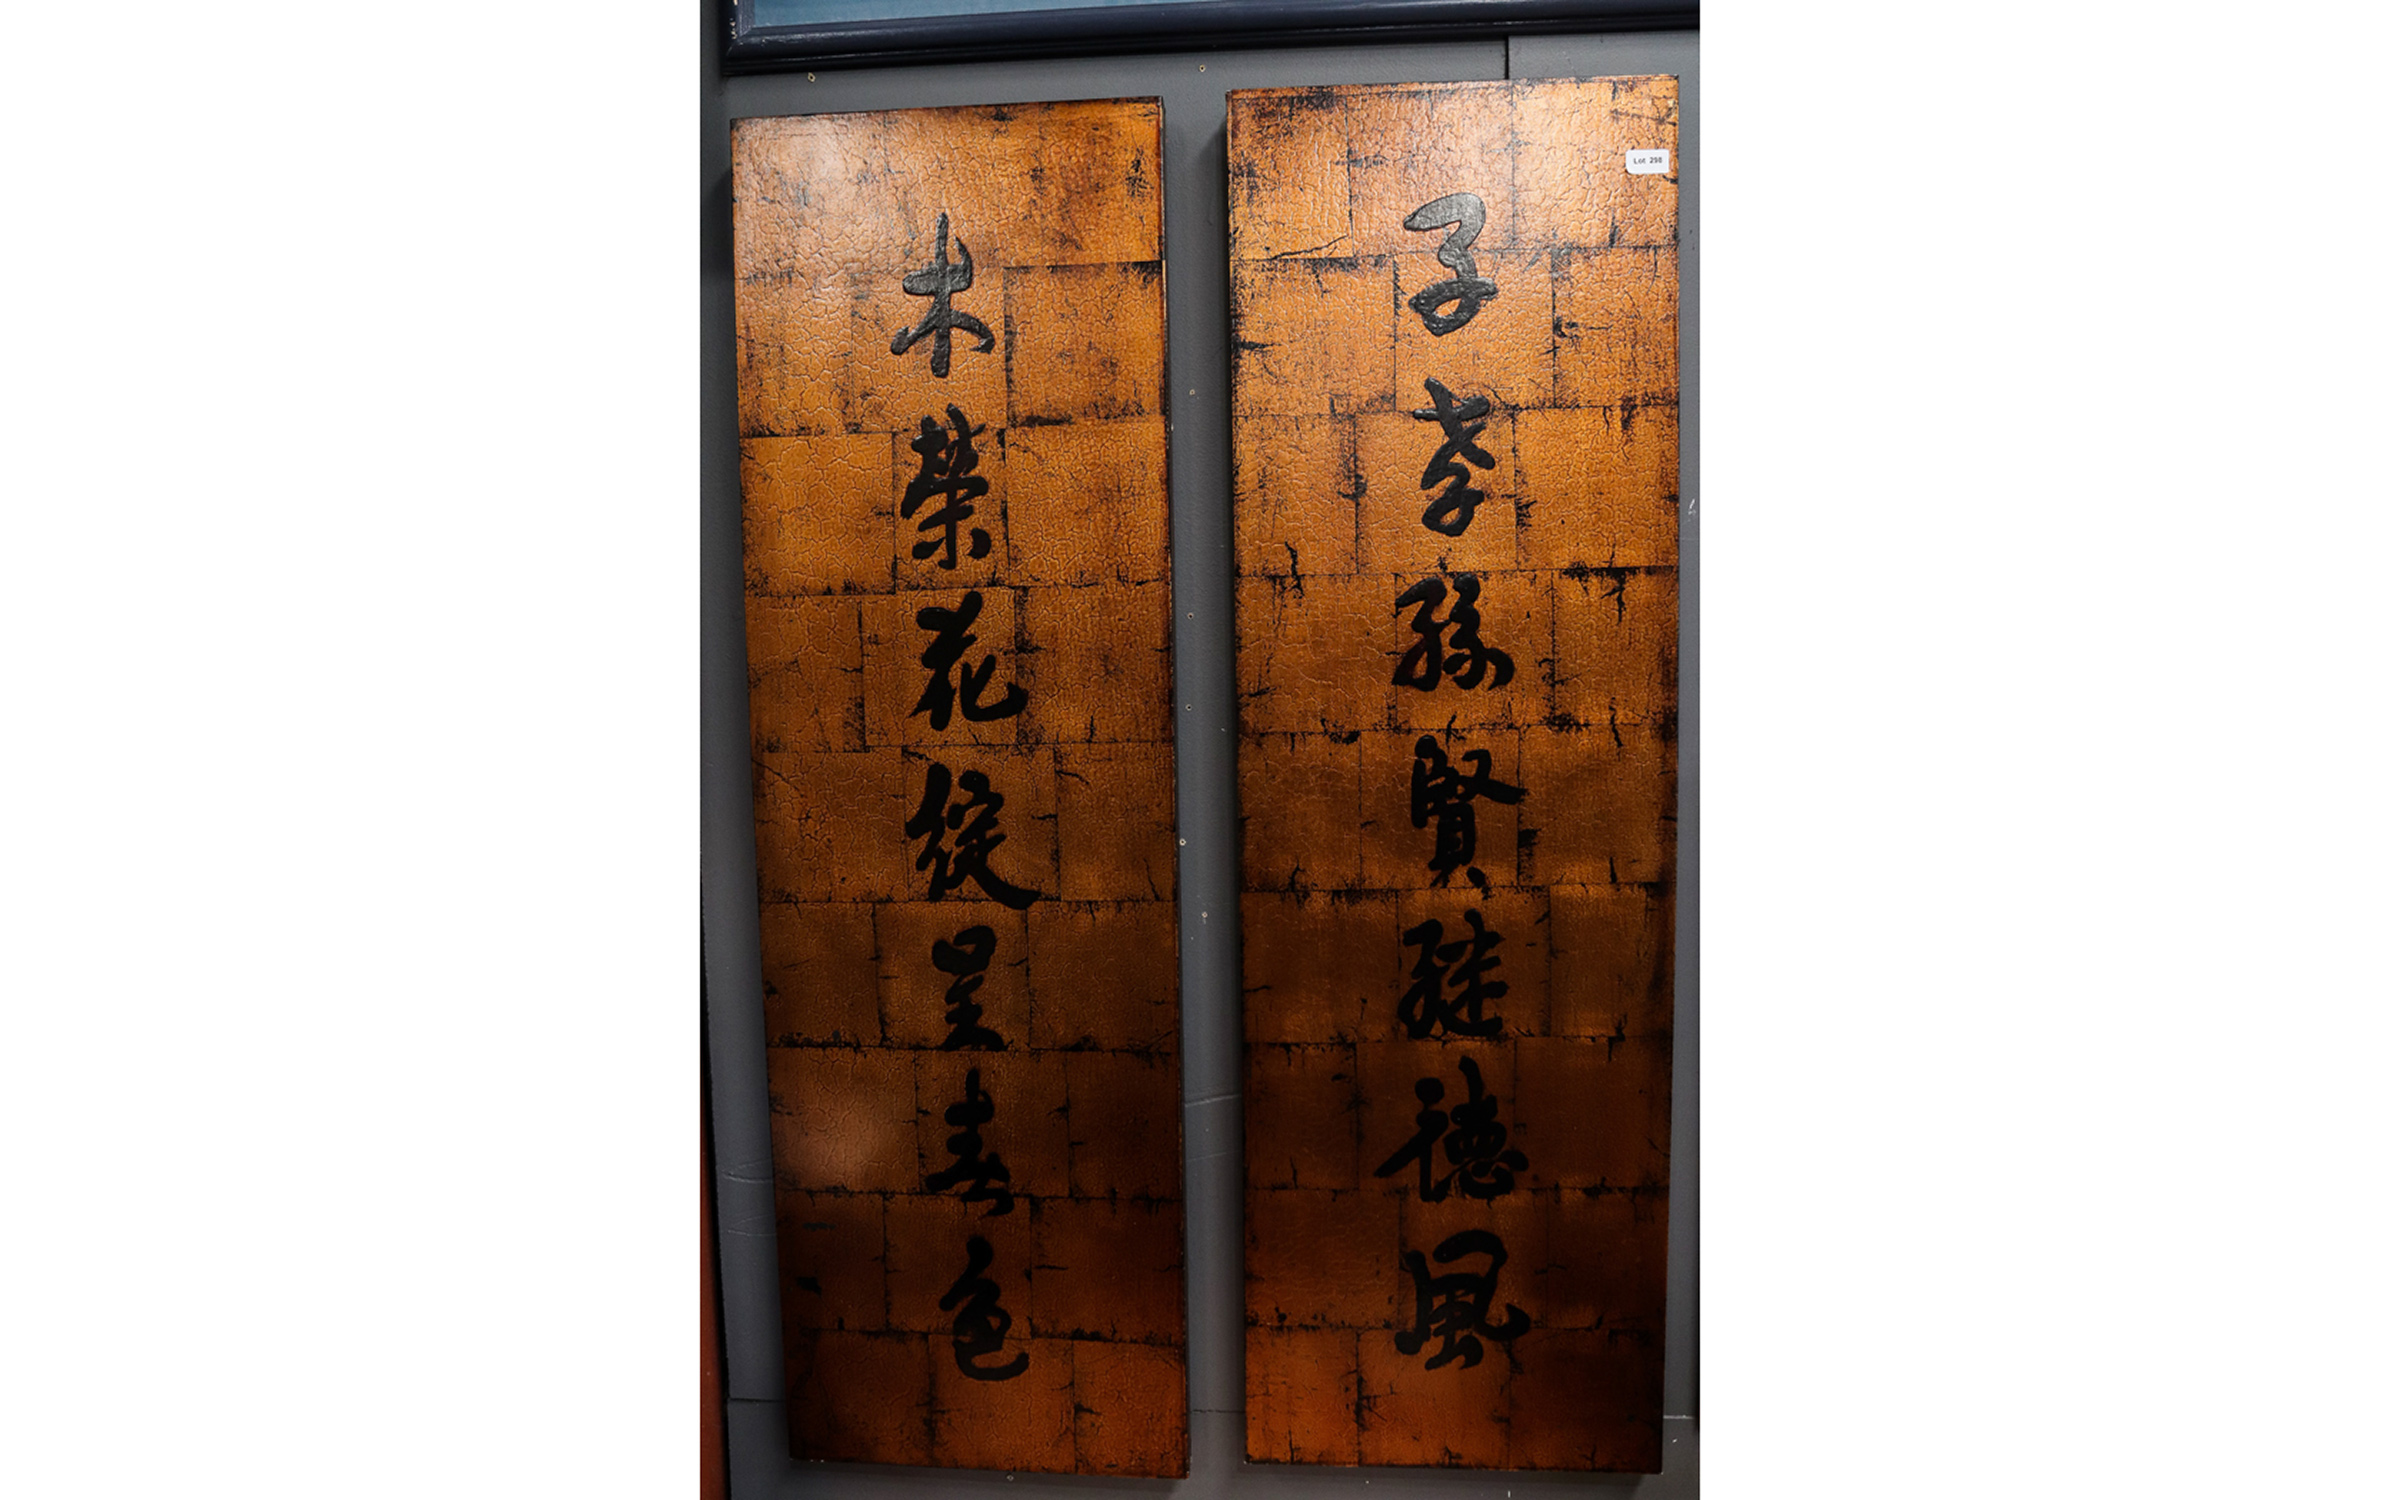 子孝孫賢繼德風
木榮花綻呈春色
Lot 298